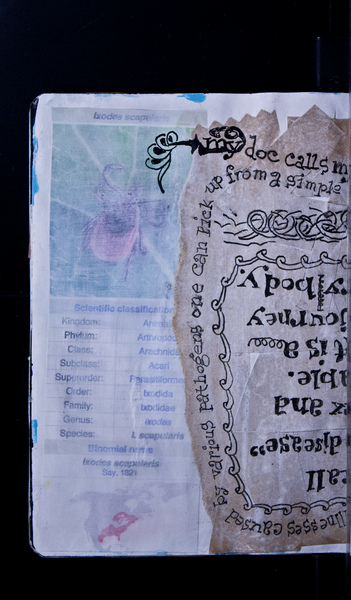 Ixodes scapularis
Scientific classification
Kingdom:
Phylum: Arthropod
Class: Arachnida
Subclass: Acari
Superorder: Parasitiformes
Order: Ixodida
Family: Ixodidae
Genus: Ixodes
Species: I. scapularis
Binomial name
Ixodes scapularis
Say, 1821
my doc calls m
up from a simple
by various pathogens one can pick
llnesses caused
all
disease"
x and
able.
t is a
journey
y body.